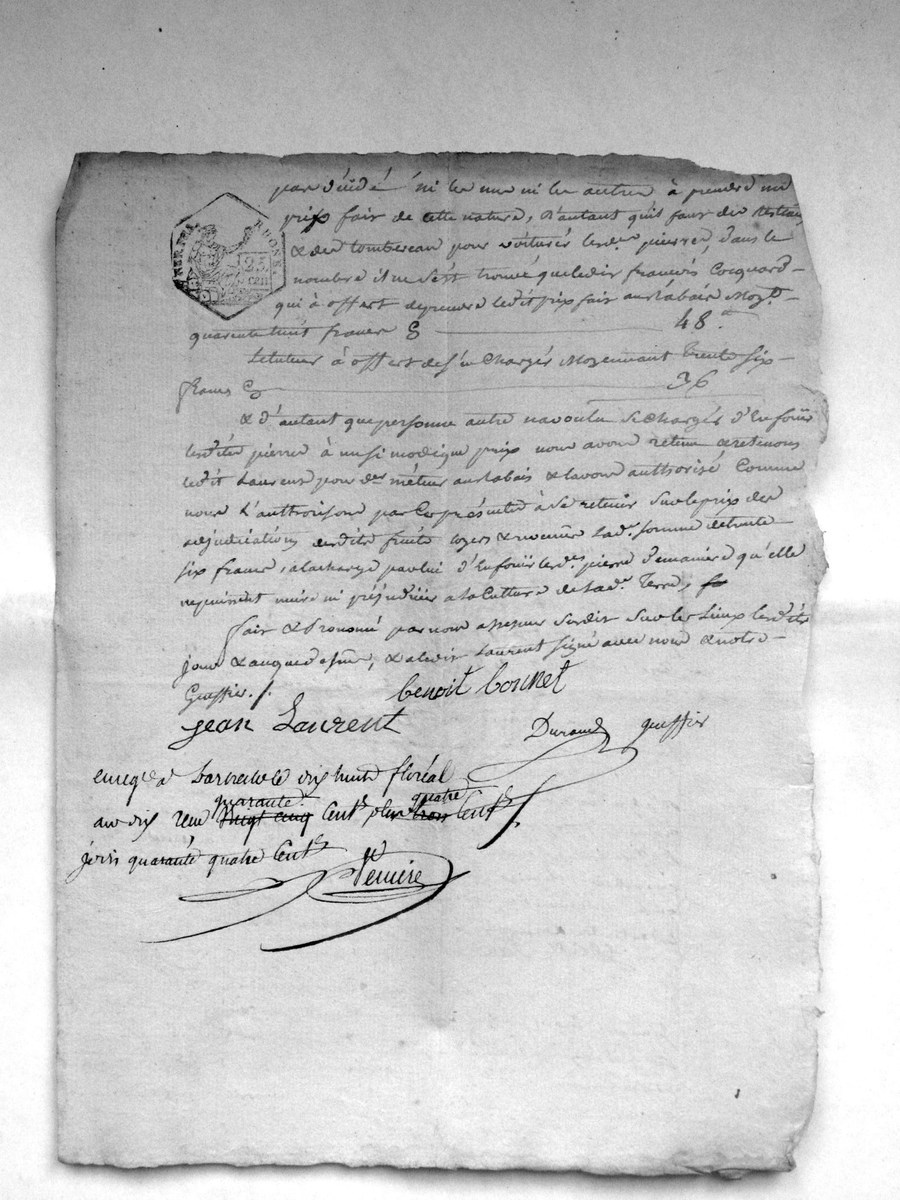 par d'éidé ni les uns ni les autres à prendre un
prix fair de cette nature, d'autant qu'il faut des Bestiaux
& des tombereau pour voiturer lesdes pierres, dans le
RHONE
25
CEN
nombre il ne s'est trouvé que ledit francois Cocquard
qui à offert de prendre ledit prix fair au Rabais Moyt
quarente huit francs 48
à offert de s'en Charger Moyennant trente six
francs 36
& d'autant que personne autre na voulu se charger d'Enfouir
lesdites pierre à un si modique prix nous avons retenu & retenons
ledit Laurens pour der méteur au Rabais & lavons authorisé Comme
nous L'authorisons par Ces présentes à se retenir sur le prix des
adjudications desdits fruits la de somme de trente
six francs, a la charge par lui d'Enfouir les des pierre de maniere qu'elle
ne puissent nuire ni préjudicier a la Culture de lade Terre,
fair & Prononcé par nous assesseur susdit sur les Lieux lesdits
jour & an que dessus, & a ledit Laurent signé avec nous & notre
Greffier.
benoit bonnet
jean Laurent
Durand greffier
a Larbresle le dix huit floréal
quarante quatre
an dix reçu vingt cinq Cent. plus trois Cent.
quarante quatre Cent.